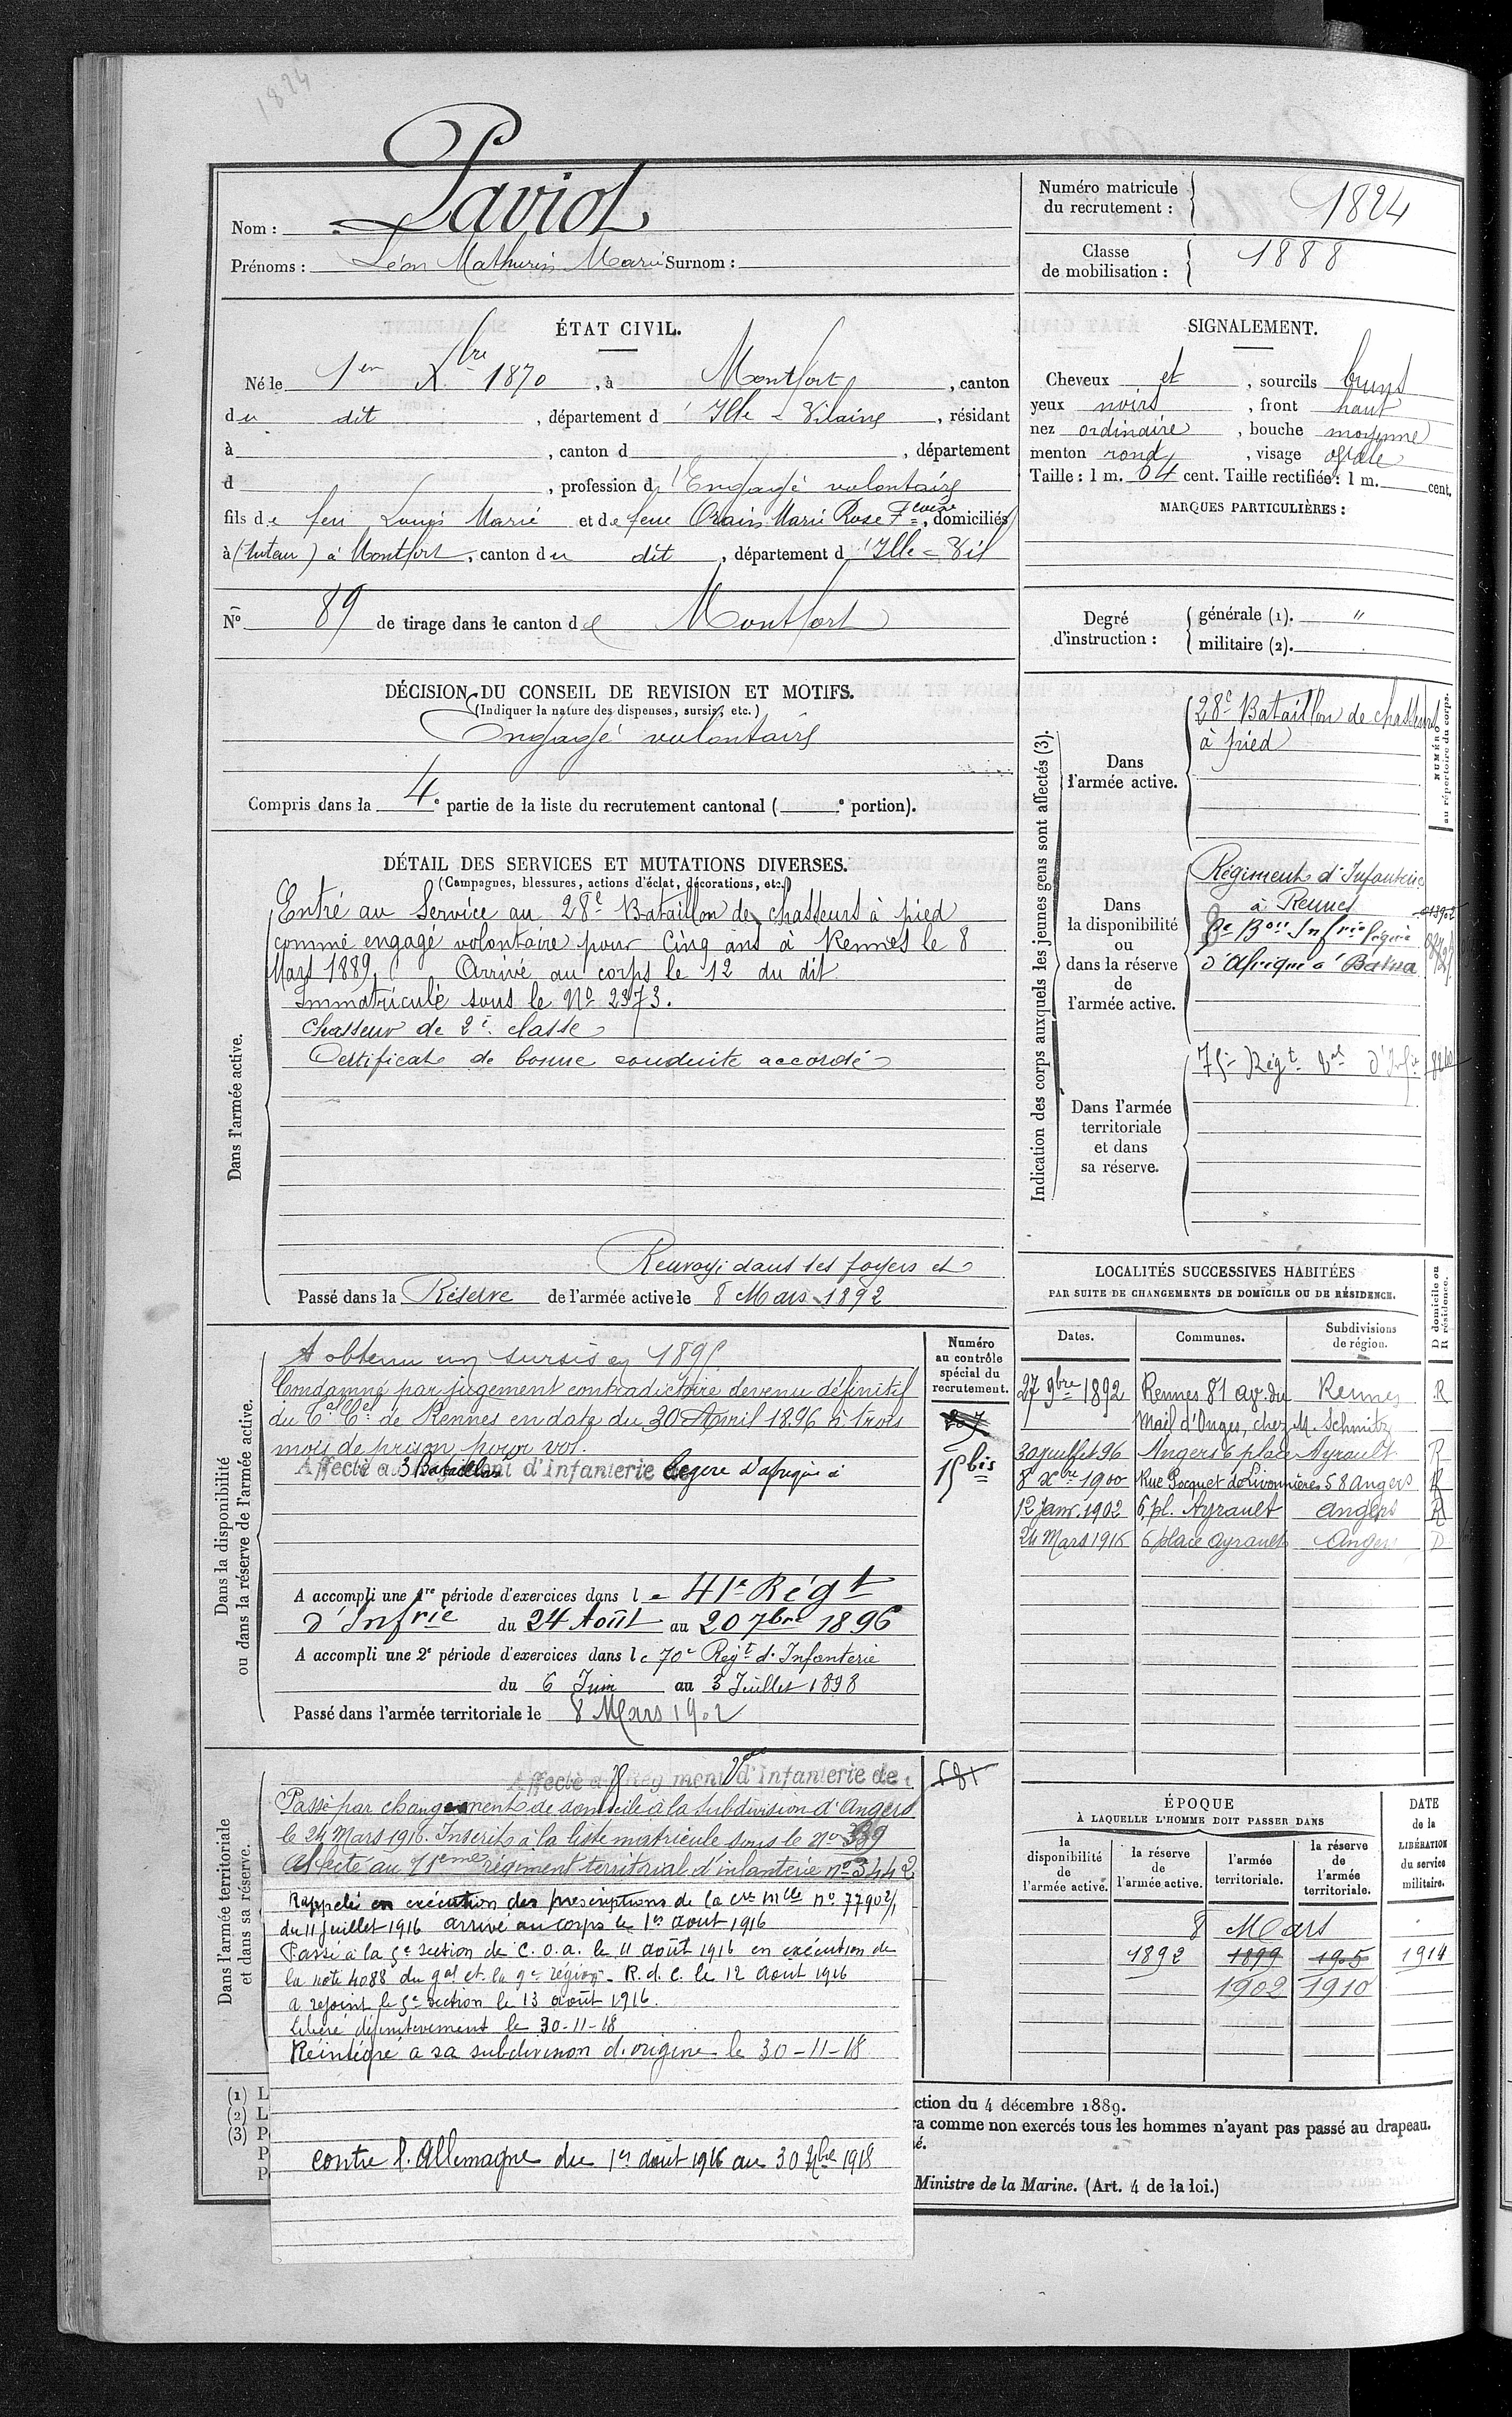 1824
Nom : Paviot
Prénoms : Léon Mathurin Marie Surnom :
Numéro matricule
du recrutement : 1824
Classe
de mobilisation : 1888
ÉTAT CIVIL.
Né le 1er Xbre 1870, à Montfort, canton
du dit, département d'Ille-Vilaine, résidant
à , canton d , département
d , profession d'Engagé volontaire
fils de feu Louis Marie et de feue Orain Marie Rose Fçoise, domiciliés
à (tuteur) à Montfort, canton du dit, département d'Ille-Vil
No 89 de tirage dans le canton de Montfort
SIGNALEMENT.
Cheveux et , sourcils bruns
yeux noirs , front haut
nez ordinaire , bouche moyenne
menton rond , visage ovale
Taille : 1 m. 64 cent. Taille rectifiée : 1 m. cent.
MARQUES PARTICULIÈRES :
Degré
d'instruction :
générale (1). "
militaire (2).
DÉCISION DU CONSEIL DE REVISION ET MOTIFS.
(Indiquer la nature des dispenses, sursis, etc.)
Engagé volontaire
Compris dans la 4e partie de la liste du recrutement cantonal ( e portion).
DÉTAIL DES SERVICES ET MUTATIONS DIVERSES.
(Campagnes, blessures, actions d'éclat, décorations, etc.)
Dans l'armée active.
Entré au Service au 28e Bataillon de chasseurs à pied
comme engagé volontaire pour Cinq ans à Rennes le 8
Mars 1889. Arrivé au corps le 12 du dit
Immatriculé sous le No 2373.
Chasseur de 2e classe
Certificat de bonne conduite accordé
Renvoyé dans ses foyers et
Passé dans la Réserve de l'armée active le 8 Mars 1892
Indication des corps auxquels les jeunes gens sont affectés (3).
NUMÉRO
au répertoire du corps.
Dans
l'armée active.
28e Bataillon de chasseurs
à pied
Dans
la disponibilité
ou
dans la réserve
de
l'armée active.
Régiment d'Infanterie
à Rennes
3e Bon Infrie légère
d'Afrique à Batna
Dans l'armée
territoriale
et dans
sa réserve.
75e Régt d'Infie
Dans la disponibilité
ou dans la réserve de l'armée active.
A obtenu un sursis en 1895
Condamné par jugement contradictoire devenu définitif
du Tal Cel de Rennes en date du 30 Avril 1896 à trois
mois de prison pour vol.
Affecté au 3 Bataillon d'Infanterie legere d'afrique à
A accompli une 1re période d'exercices dans le 41e Régt
d'Infrie du 24 Août au 20 7bre 1896
A accompli une 2e période d'exercices dans le 70e Regt d'Infanterie
du 6 Juin au 3 Juillet 1898
Passé dans l'armée territoriale le 8 Mars 1902
Numéro
au contrôle
spécial du
recrutement.
15bis
LOCALITÉS SUCCESSIVES HABITÉES
PAR SUITE DE CHANGEMENTS DE DOMICILE OU DE RÉSIDENCE.
Dates. Communes. Subdivisions
de région. D domicile ou
R résidence.
27 9bre 1892 Rennes 81 av. du Rennes R
Mail d'Onges, chez M. Schmitz
30 juillet 96 Angers 6 place Ayrault R
8 Xbre 1900 Rue Pocquet de Livonnières 58 Angers R
12 Janv. 1902 6, pl. Ayrault Angers R
24 Mars 1916 6 place Ayrault Angers D
Dans l'armée territoriale
et dans sa réserve.
Affecté au Régiment d'Infanterie de
581
Passé par changement de domicile à la Subdivision d'Angers
le 24 Mars 1916. Inscrit à la liste matricule sous le No 339
Affecté au 71eme régiment territorial d'infanterie no 3442
Rappelé en exécution des prescriptions de la cre mlle no 77902/1
du 11 juillet 1916 arrivé au corps le 1er aout 1916
Passé à la 5e section de C. O. A. le 11 août 1916 en exécution de
la note 4088 du gal ct. la 9e région - R. d. C. le 12 Aout 1916
a rejoint le 5e section le 13 août 1916.
Libéré définitivement le 30-11-18
Réintégré à sa subdivision d'origine le 30-11-18
contre l'Allemagne du 1er août 1916 au 30 9bre 1918
ÉPOQUE
À LAQUELLE L'HOMME DOIT PASSER DANS
DATE
de la
LIBÉRATION
du service
militaire.
la
disponibilité
de
l'armée active.
la réserve
de
l'armée active.
l'armée
territoriale.
la réserve
de
l'armée
territoriale.
8 Mars
1892 1899 1905 1914
1902 1910
(1) L
(2) L
(3) P
P
P
ction du 4 décembre 1889.
ra comme non exercés tous les hommes n'ayant pas passé au drapeau.
é.
Ministre de la Marine. (Art. 4 de la loi.)